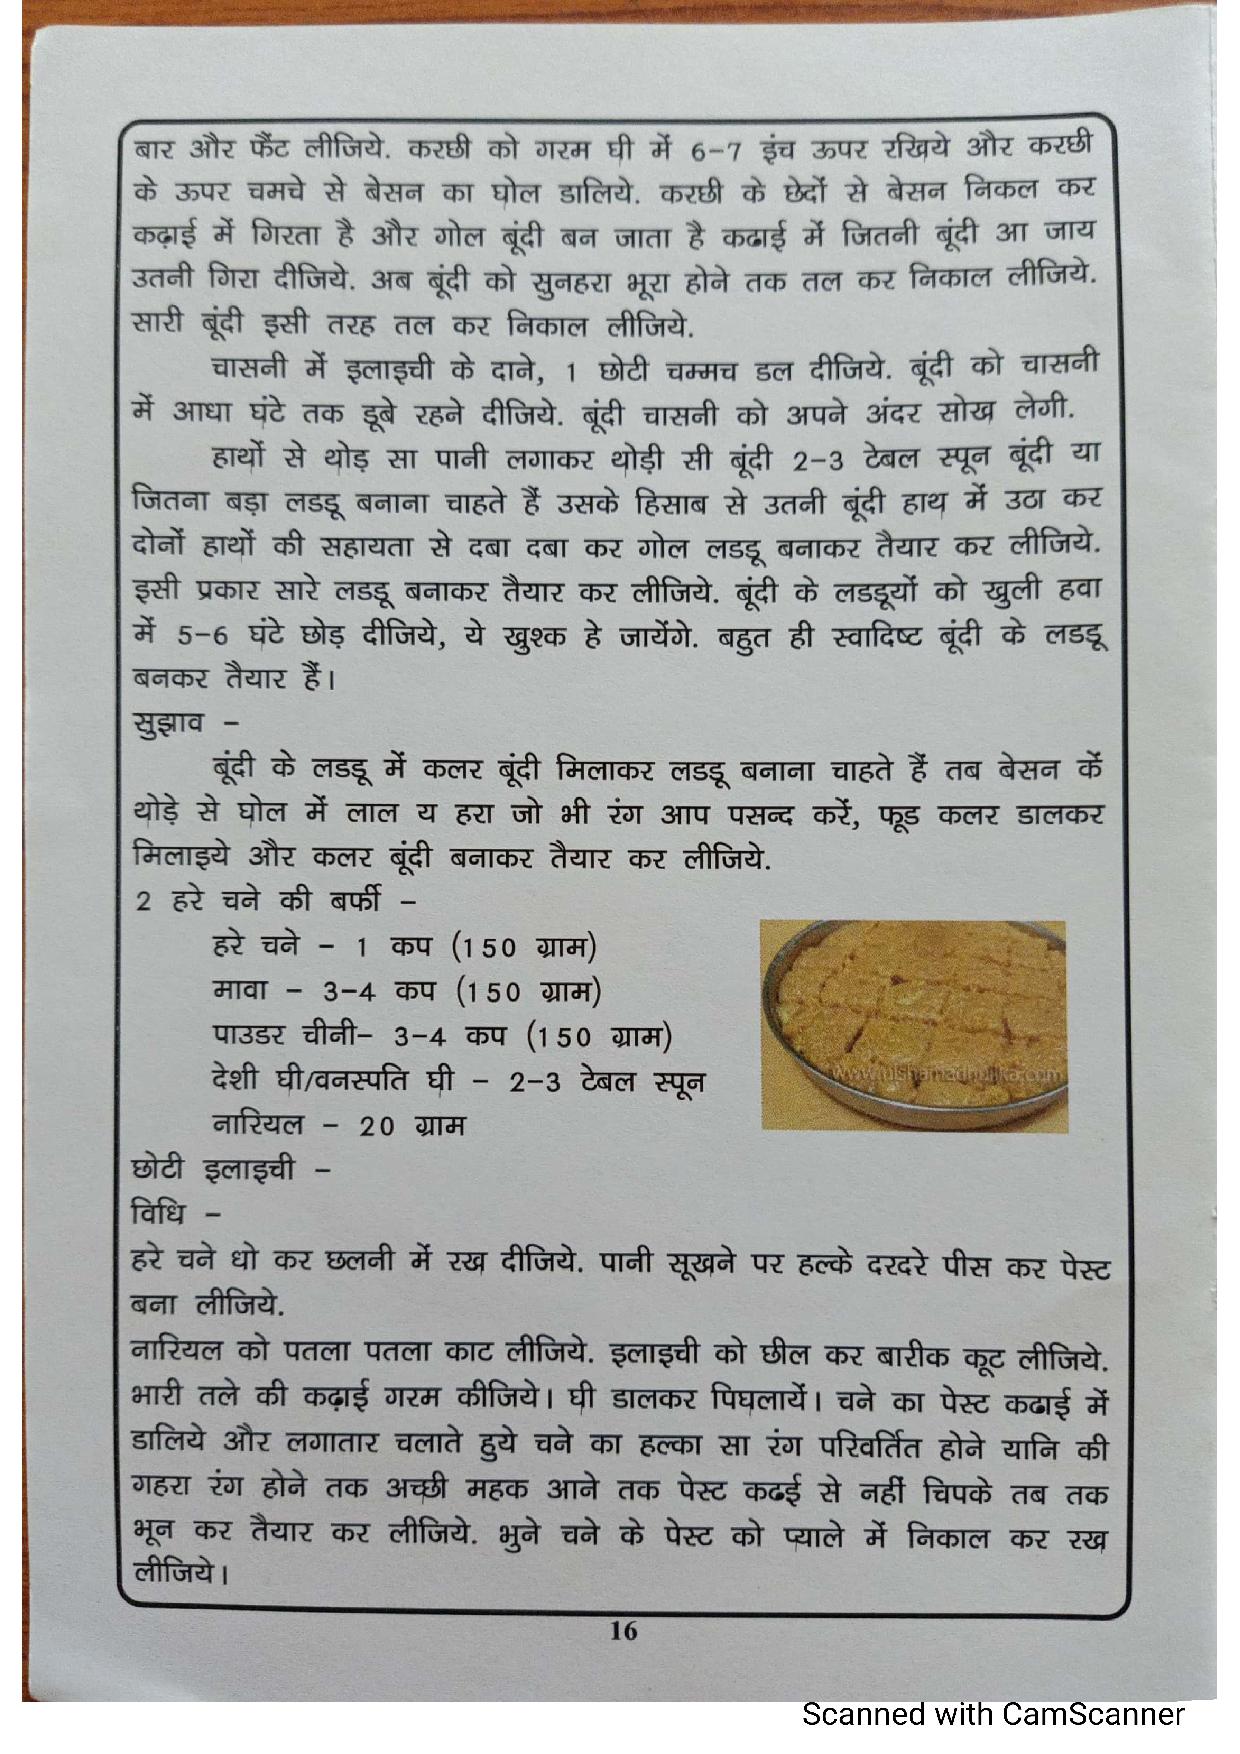 बार और फैंट लीजिये. करछी को गरम घी में 6-7 इंच ऊपर रखिये और करछी
के ऊपर चमचे से बेसन का घोल डालिये. करछी के छेदों से बेसन निकल कर
कढ़ाई में गिरता है और गोल बूंदी बन जाता है कढाई में जितनी बूंदी आ जाय
उतनी गिरा दीजिये. अब बूंदी को सुनहरा भूरा होने तक तल कर निकाल लीजिये.
सारी बूंदी इसी तरह तल कर निकाल लीजिये.
चासनी में इलाइची के दाने, 1 छोटी चम्मच डल दीजिये. बूंदी को चासनी
में आधा घंटे तक डूबे रहने दीजिये. बूंदी चासनी को अपने अंदर सोख लेगी.
हाथों से थोड़ सा पानी लगाकर थोड़ी सी बूंदी 2-3 टेबल स्पून बूंदी या
जितना बड़ा लडडू बनाना चाहते हैं उसके हिसाब से उतनी बूंदी हाथ में उठा कर
दोनों हाथों की सहायता से दबा दबा कर गोल लडडू बनाकर तैयार कर लीजिये.
इसी प्रकार सारे लडडू बनाकर तैयार कर लीजिये. बूंदी के लडडूयों को खुली हवा
में 5-6 घंटे छोड़ दीजिये, ये खुश्क हे जायेंगे. बहुत ही स्वादिष्ट बूंदी के लडडू
बनकर तैयार हैं।
सुझाव -
बूंदी के लडडू में कलर बूंदी मिलाकर लडडू बनाना चाहते हैं तब बेसन कें
थोड़े से घोल में लाल य हरा जो भी रंग आप पसन्द करें, फूड कलर डालकर
मिलाइये और कलर बूंदी बनाकर तैयार कर लीजिये.
2 हरे चने की बर्फी -
हरे चने - 1 कप (150 ग्राम)
मावा - 3-4 कप (150 ग्राम)
पाउडर चीनी- 3-4 कप (150 ग्राम)
देशी घी/वनस्पति घी - 2-3 टेबल स्पून
नारियल - 20 ग्राम
www.nishamadhulika.com
छोटी इलाइची -
विधि -
हरे चने धो कर छलनी में रख दीजिये. पानी सूखने पर हल्के दरदरे पीस कर पेस्ट
बना लीजिये.
नारियल को पतला पतला काट लीजिये. इलाइची को छील कर बारीक कूट लीजिये.
भारी तले की कढ़ाई गरम कीजिये। घी डालकर पिघलायें। चने का पेस्ट कढाई में
डालिये और लगातार चलाते हुये चने का हल्का सा रंग परिवर्तित होने यानि की
गहरा रंग होने तक अच्छी महक आने तक पेस्ट कढई से नहीं चिपके तब तक
भून कर तैयार कर लीजिये. भुने चने के पेस्ट को प्याले में निकाल कर रख
लीजिये।
16
Scanned with CamScanner